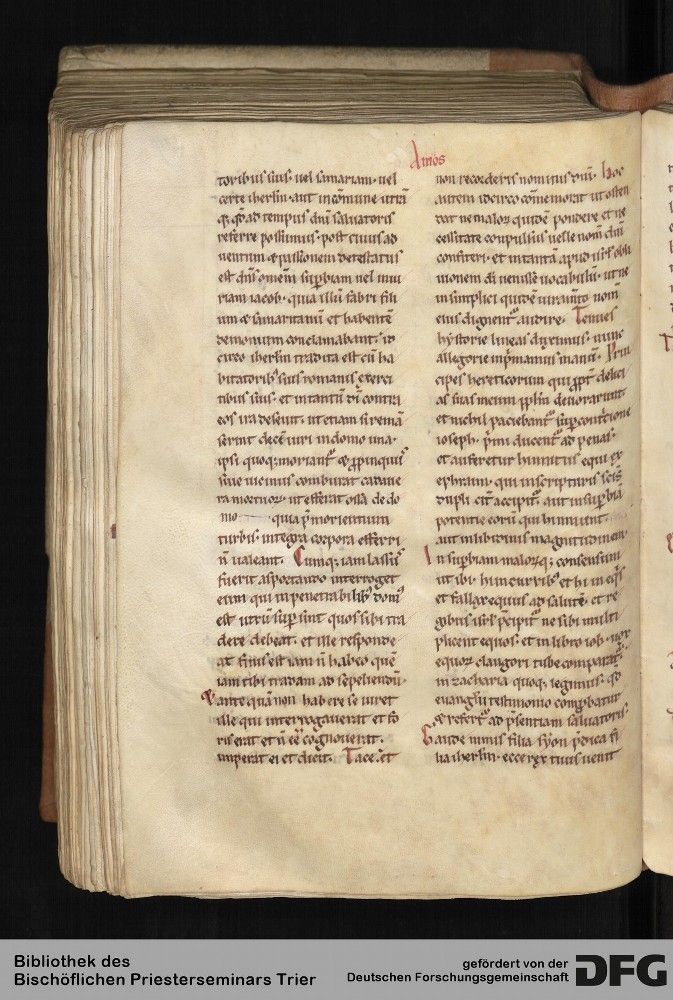 Amos
toribus suis. uel samariam. uel
certe iherlm̄. aut in cōmune utrā
q; qd̄ ad tempus dn̄i saluatoris
referre possumus. post cuius ad
uentum & passionem detestatus
est dn̄s omnē sup̄biam uel iniu
riam iacob. quia illū fabri fili
um & samaritanū et habentē
demonium conclamabant. id
circo iherlm̄ tradita est cū ha
bitatorib; suis romanis exerci
tibus suis. et in tantū dn̄i contra
eos ira deseuit. ut etiam si remā
serint decē uiri in domo una.
ipsi quoq; moriant̄ & p̄pinquus
siue uicinus comburat cadaue
ra mortuoꝝ. ut efferat ossa de do
mo quia p̄ morientium
turbis. integra corpora efferri
n̄ ualeant. Cumq; iam lassus
fuerit asportando interroget
eum qui in penetrabilib; dom'
est utrū sup̄ sint quos sibi tra
dere debeat. et ille responde
at finis est iam n̄ habeo quē
iam tibi tradam ad sepeliendū.
Et ante quā non habere se iuret
ille qui interrogauerat et so
riserat et n̄ eē cognouerat.
imperat ei et dicit. Tace. et
non recorderis nominis dn̄i. hoc
autem idcirco cōmemorat ut osten
dat ne malor̄ quidē pondere et ne
cessitate conpulsus uelle nom̄ dn̄i
confiteri. et in tantā apud uos obli
uionem dī uenisse uocabulū. ut ne
in simplici quidē iuramto nom̄
eius dignent̄ audire. Tenues
hystorie lineas duximus. nunc
allegorie inp̄mamus manū. Prin
cipes hereticorum qui ppt̄ delici
as suas inimici ppl̄m deuorarunt
et nichil paciebant̄ sup̄ contricione
ioseph. p̄mi ducent̄ ad penas.
et auferetur hinnitus equi ex
ephraim. qui in scripturis scīs
dupl̄r accipit̄. aut in sup̄biā
potentie eorū qui hinniunt
aut in libidinis magnitudinem.
In sup̄biam maloꝝq; consensum
ut ibi. hii in currib; et hi in eq̄s
et fallax equus ad salutē. et re
gibus isr̄l p̄cipit̄ ne sibi multi
plicent equos. et in libro iob. uox
equoꝝ clangori tube comparat̄.
in zacharia quoq; legimus. qd̄
euangl̄ii testimonio comp̄batur
& refert̄ ad p̄sentiam saluatoris.
Gaude nimis filia syon p̄dica fi
lia iherlm̄. ecce rex tuus uenit
Bibliothek des
Bischöflichen Priesterseminars Trier
gefördert von der
Deutschen Forschungsgemeinschaft
DFG